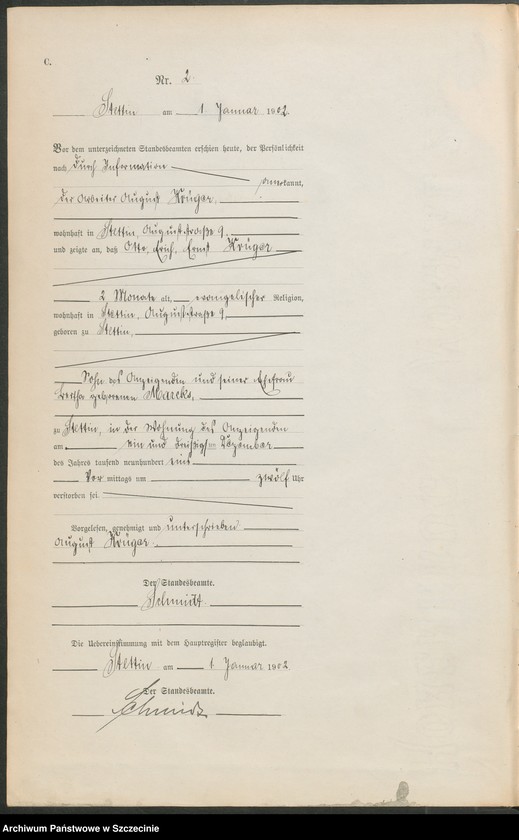 C.
Nr. 2
Stettin am 1 Januar 1902
Vor dem unterzeichneten Standesbeamten erschien heute, der Persönlichkeit
nach durch Information
anerkannt,
der Arbeiter August Krüger
wohnhaft in Stettin, Auguststraße 9
und zeigte an, daß Otto, Erich, Ernst Krüger
2 Monate alt, evangelischer Religion,
wohnhaft in Stettin, Auguststraße 9
geboren zu Stettin,
Sohn des Anzeigenden und seiner Ehefrau
Bertha geborenen Marcks,
zu Stettin, in der Wohnung des Anzeigenden
am ein und dreißigsten Dezember
des Jahres tausend neunhundert eins
Vor mittags um zwölf Uhr
verstorben sei.
Vorgelesen, genehmigt und unterschrieben
August Krüger.
Der Standesbeamte.
Schmidt
Die Uebereinstimmung mit dem Hauptregister beglaubigt.
Stettin am 1 Januar 1902
Der Standesbeamte.
Schmidt
Archiwum Państwowe w Szczecinie